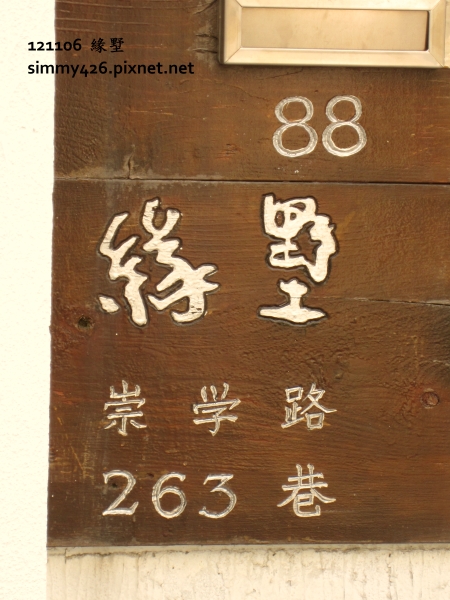 121106 緣墅
simmy426.pixnet.net
88
緣墅
崇学路
263巷